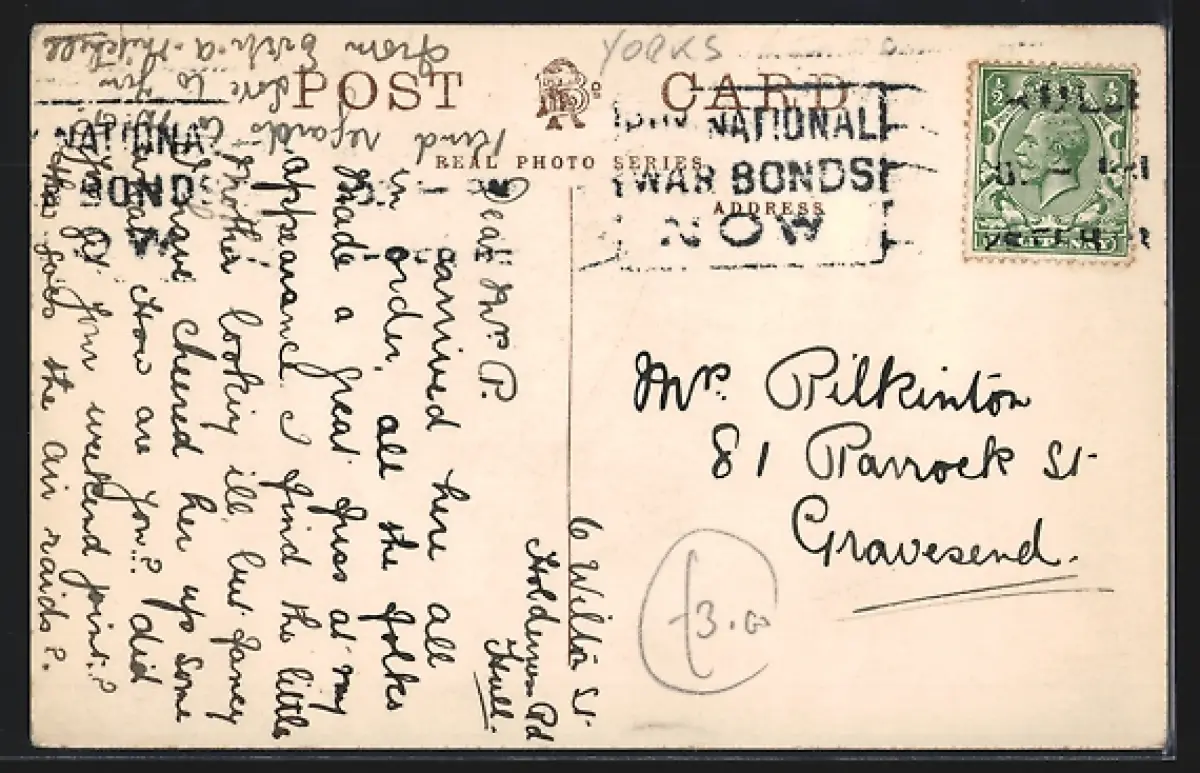 YORKS
POST CARD
REAL PHOTO SERIES
ADDRESS
NATIONAL
WAR BONDS
NOW
NATIONA
BONDS
HULL
Mr. Pilkinton
81 Parrock St
Gravesend.
£3.00
6 Wilton St
Holderness Rd
Hull.
Dear Mr. P.
arrived here all
in order, all the folks
made a great fuss at my
appearance I find the little
Mother looking ill, but fancy
I have cheered her up some
what. How are you? did
you get your weekend joint?
the air raids?
Kind regards to
love to
from